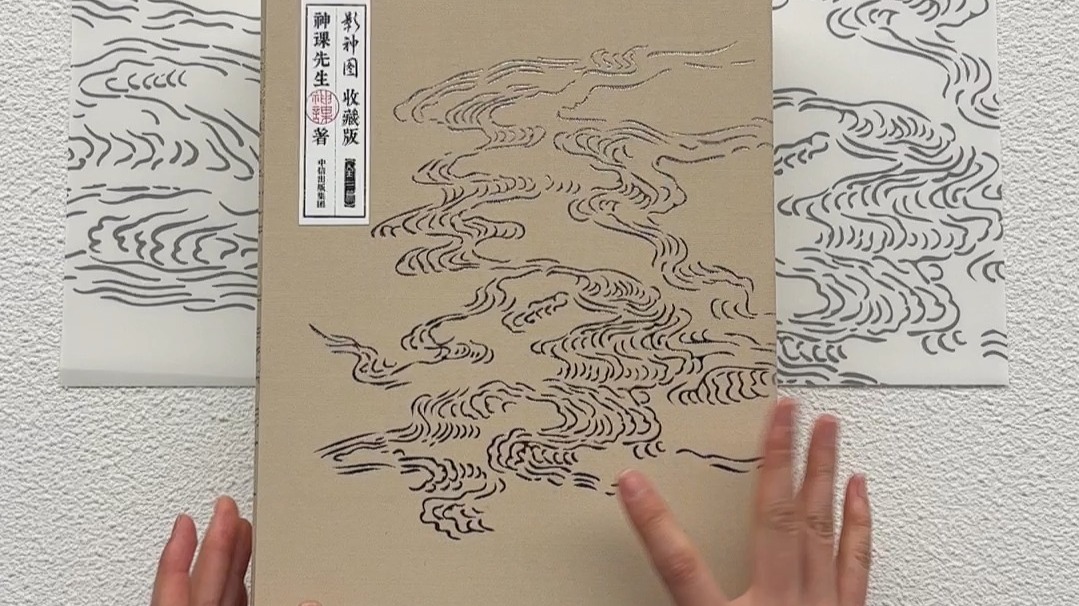 影神图 收藏版
神课先生 著
中信出版集团